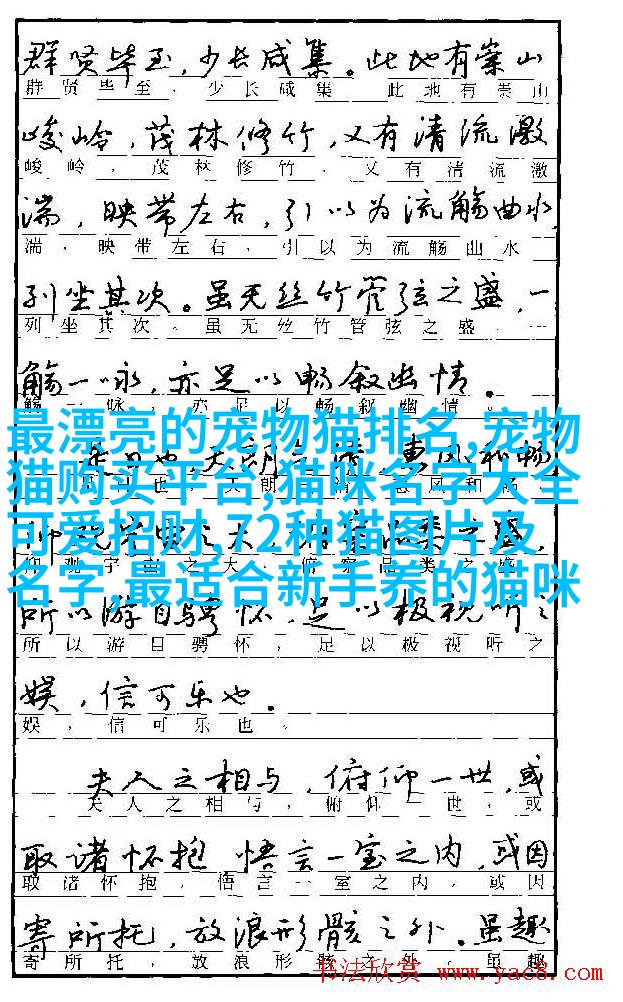 群贤毕至,少长咸集。此地有崇山
群贤毕至,少长咸集 此地有崇山
峻岭,茂林修竹,又有清流激
峻岭,茂林修竹,又有清流激
湍,映带左右,引以为流觞曲水,
湍,映带左右,引以为流觞曲水
列坐其次。虽无丝竹管弦之盛,一
列坐其次。虽无丝竹管弦之盛,一
觞一咏,亦足以畅叙幽情。
觞一咏,亦足以畅叙幽情。
最漂亮的宠物猫排名,宠物
猫购买平台,猫咪名字大全
可爱招财,72种猫图片及
名字 最适合新手养的猫咪
所以游目骋怀,足以极视听之
所以游目骋怀,足以极视听之
娱,信可乐也。
娱,信可乐也。
夫人之相与,俯仰一世,或
夫人之相与,俯仰一世,或
取诸怀抱 悟言一室之内,或因
取诸怀抱,悟言一室之内,或因
寄所托,放浪形骸之外。虽趣
寄所托,放浪形骸之外 虽趣
书法欣赏 www.yac8.com